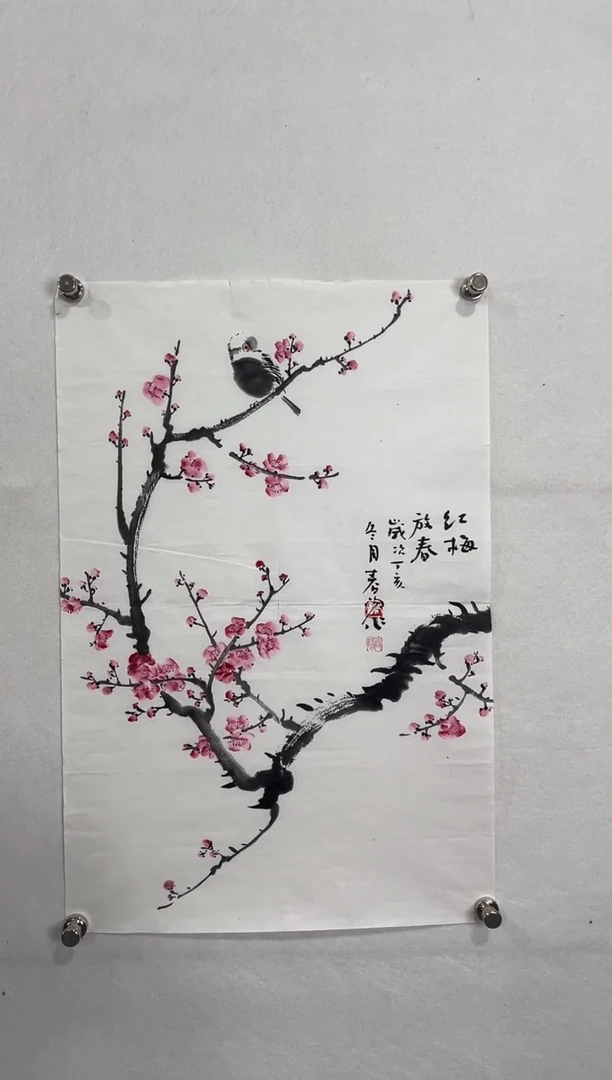 红梅
放春
岁次丁亥
冬月春